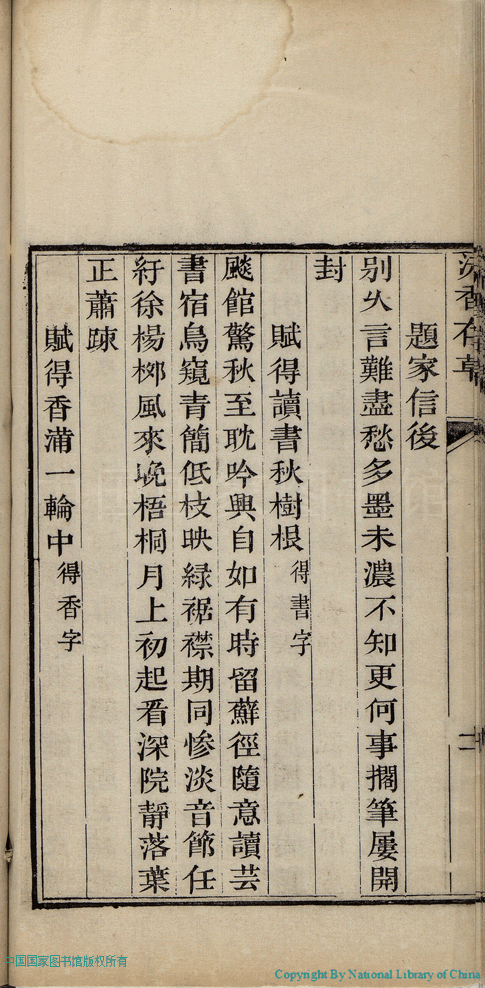 香存草
題家信後
别久言難盡愁多墨未濃不知更何事擱筆屢開
封
賦得讀書秋樹根得書字
颷館驚秋至耽吟興自如有時留蘚徑隨意讀芸
書宿鳥窺青簡低枝映綠裾襟期同慘淡音節任
紆徐楊桞風來晚梧桐月上初起看深院靜落葉
正蕭踈
賦得香滿一輪中得香字
二
中国国家图书馆版权所有
Copyright By National Library of China